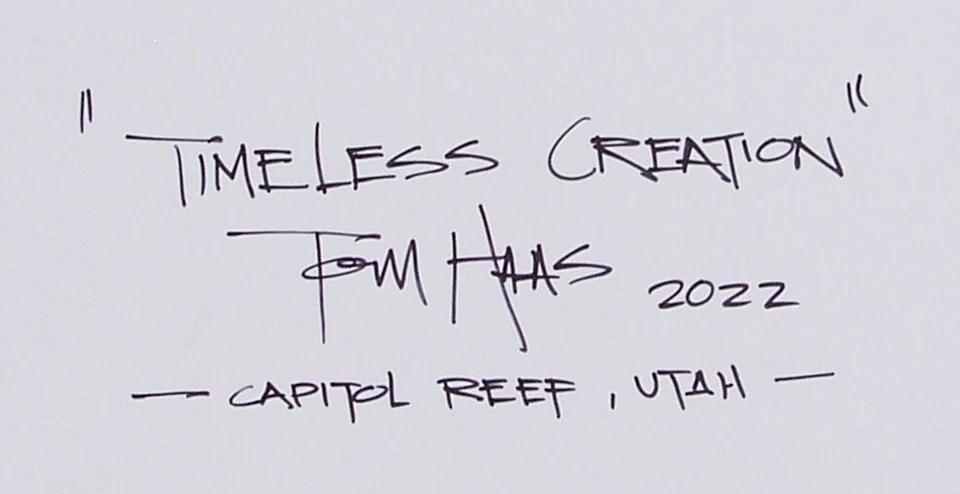 "TIMELESS CREATION"
TOM HAAS 2022
— CAPITOL REEF, UTAH —